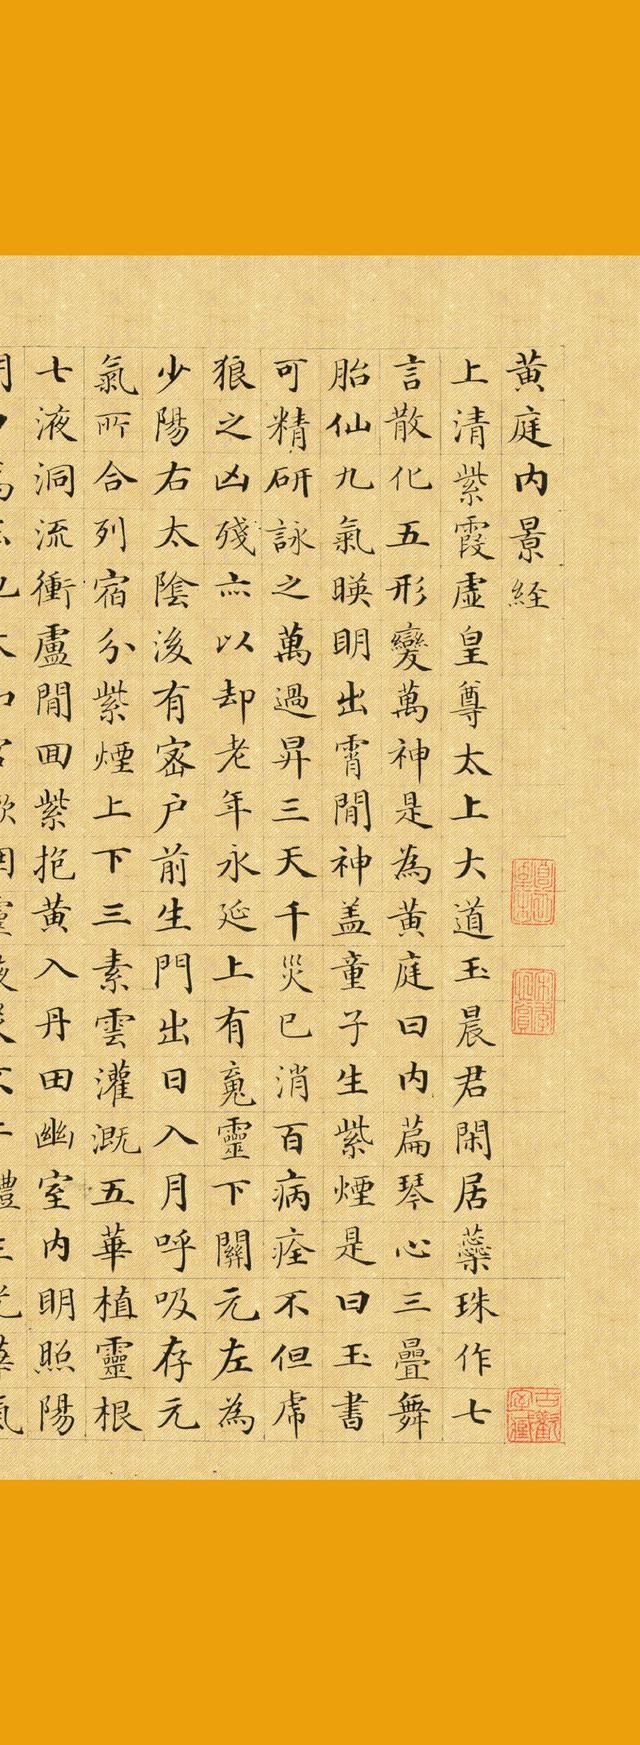 黄庭内景経
上清紫霞虚皇尊太上大道玉晨君閑居蘂珠作七
言散化五形變萬神是為黄庭曰内萹琴心三疊舞
胎仙九氣暎明出霄間神盖童子生紫煙是曰玉書
可精研詠之萬過昇三天千災已消百病痊不但虎
狼之凶殘亦以却老年永延上有䰟靈下關元左為
少陽右太陰後有密户前生門出日入月呼吸存元
氣所合列宿分紫煙上下三素雲灌溉五華植靈根
七液洞流衝盧間回紫抱黄入丹田幽室内明照陽